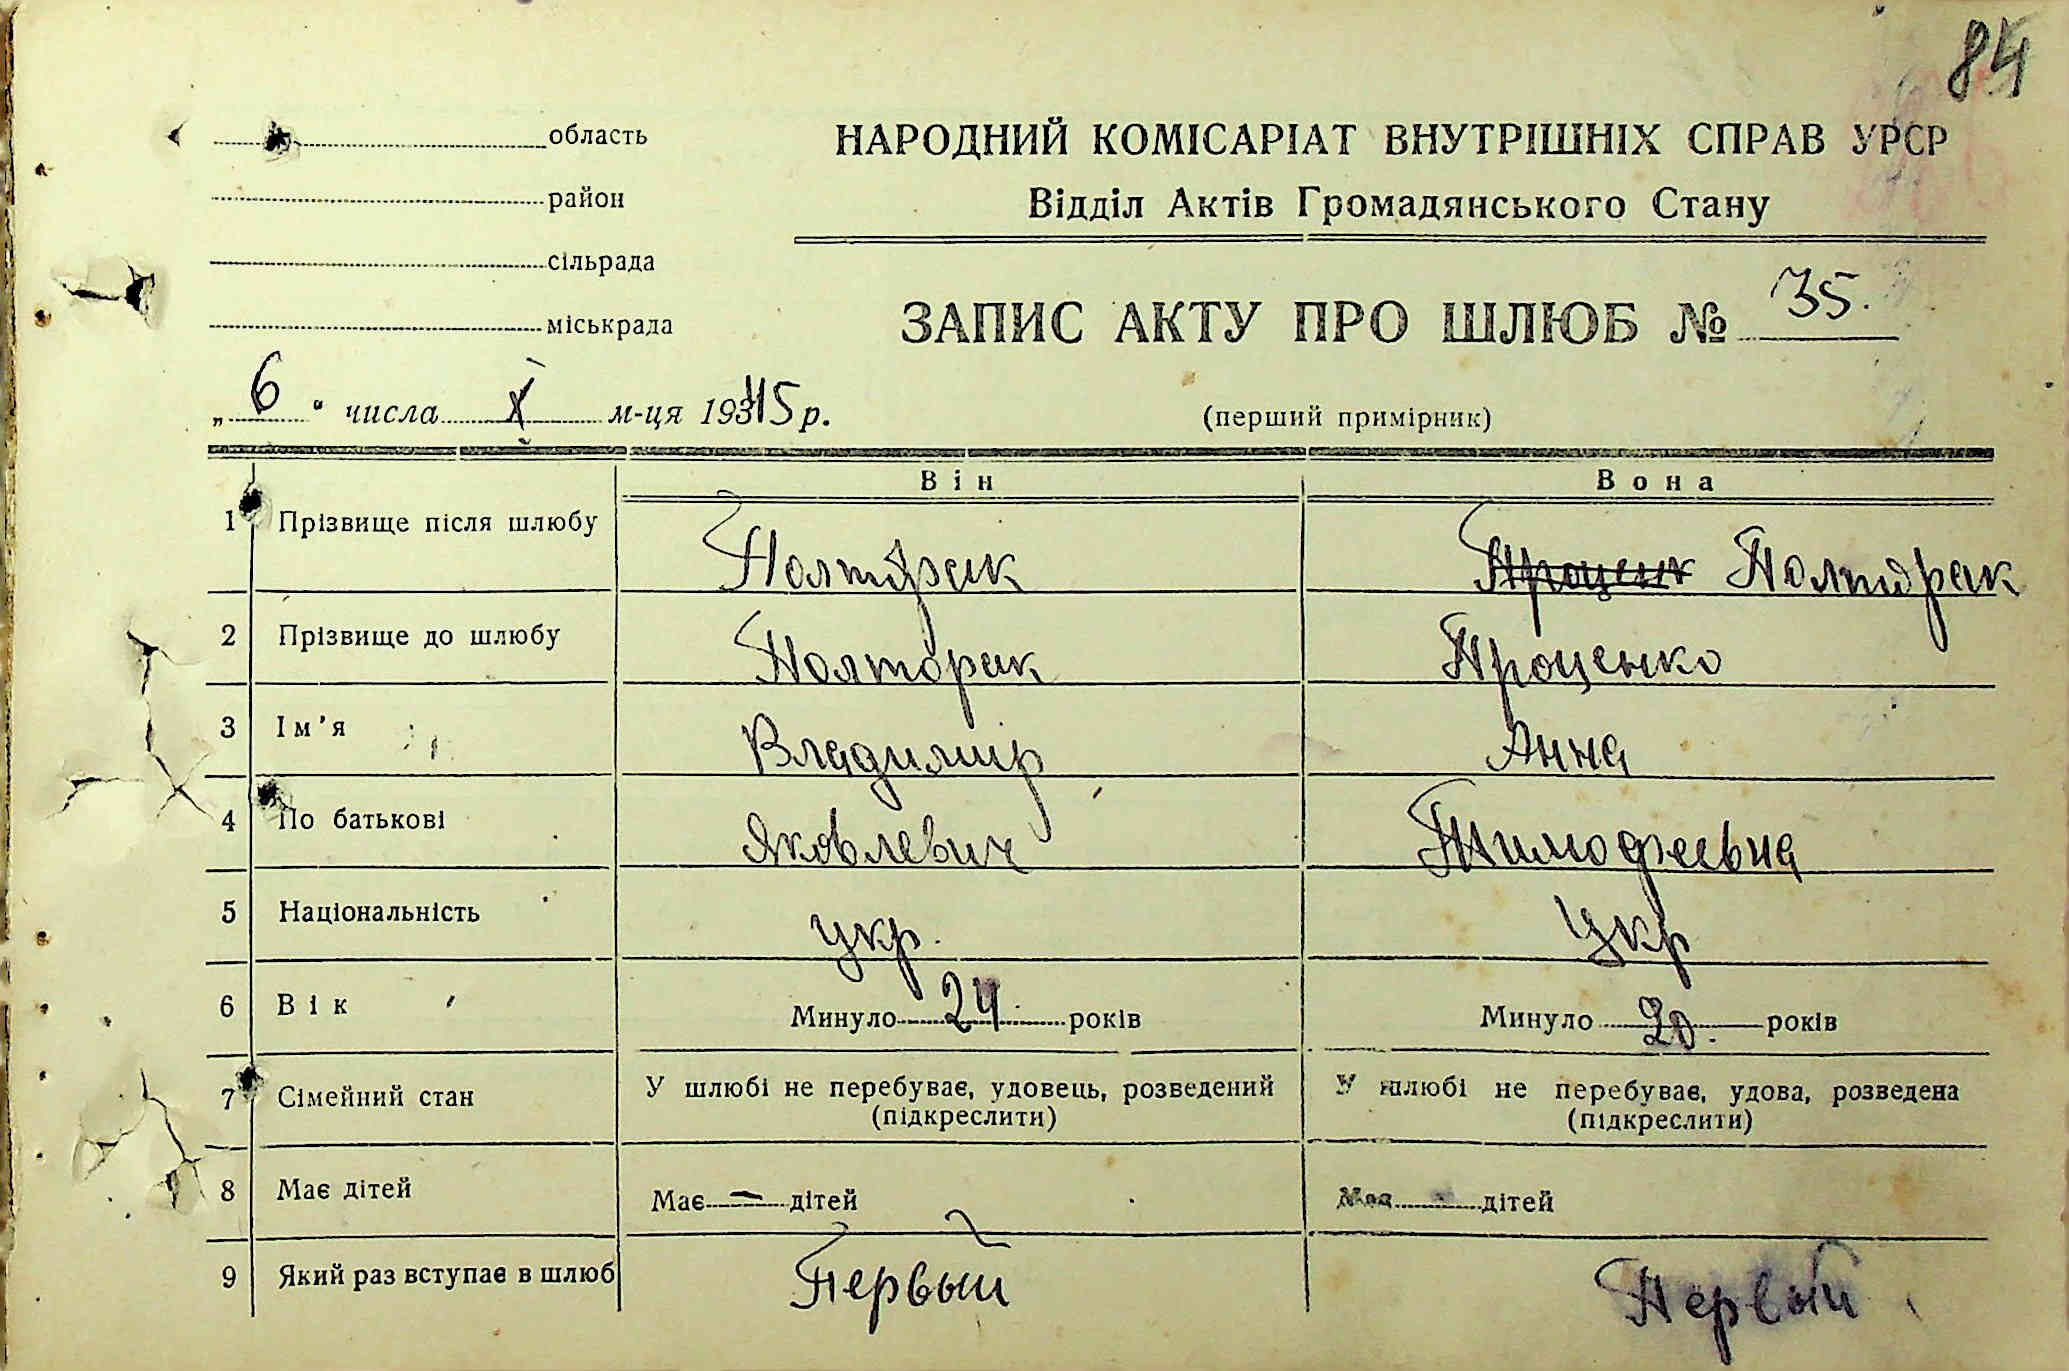 84
область
район
сільрада
міськрада
НАРОДНИЙ КОМІСАРІАТ ВНУТРІШНІХ СПРАВ УРСР
Відділ Актів Громадянського Стану
ЗАПИС АКТУ ПРО ШЛЮБ № 35.
„ 6 " числа X м-ця 1945 р.
(перший примірник)
Він Вона
1 Прізвище після шлюбу Полторак Проценк Полторак
2 Прізвище до шлюбу Полторак Проценко
3 Ім'я Владимир Анна
4 По батькові Яковлевич Тимофеевна
5 Національність укр. Укр
6 Вік Минуло 24 років Минуло 20. років
7 Сімейний стан У шлюбі не перебуває, удовець, розведений У шлюбі не перебуває, удова, розведена
(підкреслити) (підкреслити)
8 Має дітей Має — дітей Має дітей
9 Який раз вступає в шлюб Первый Первый